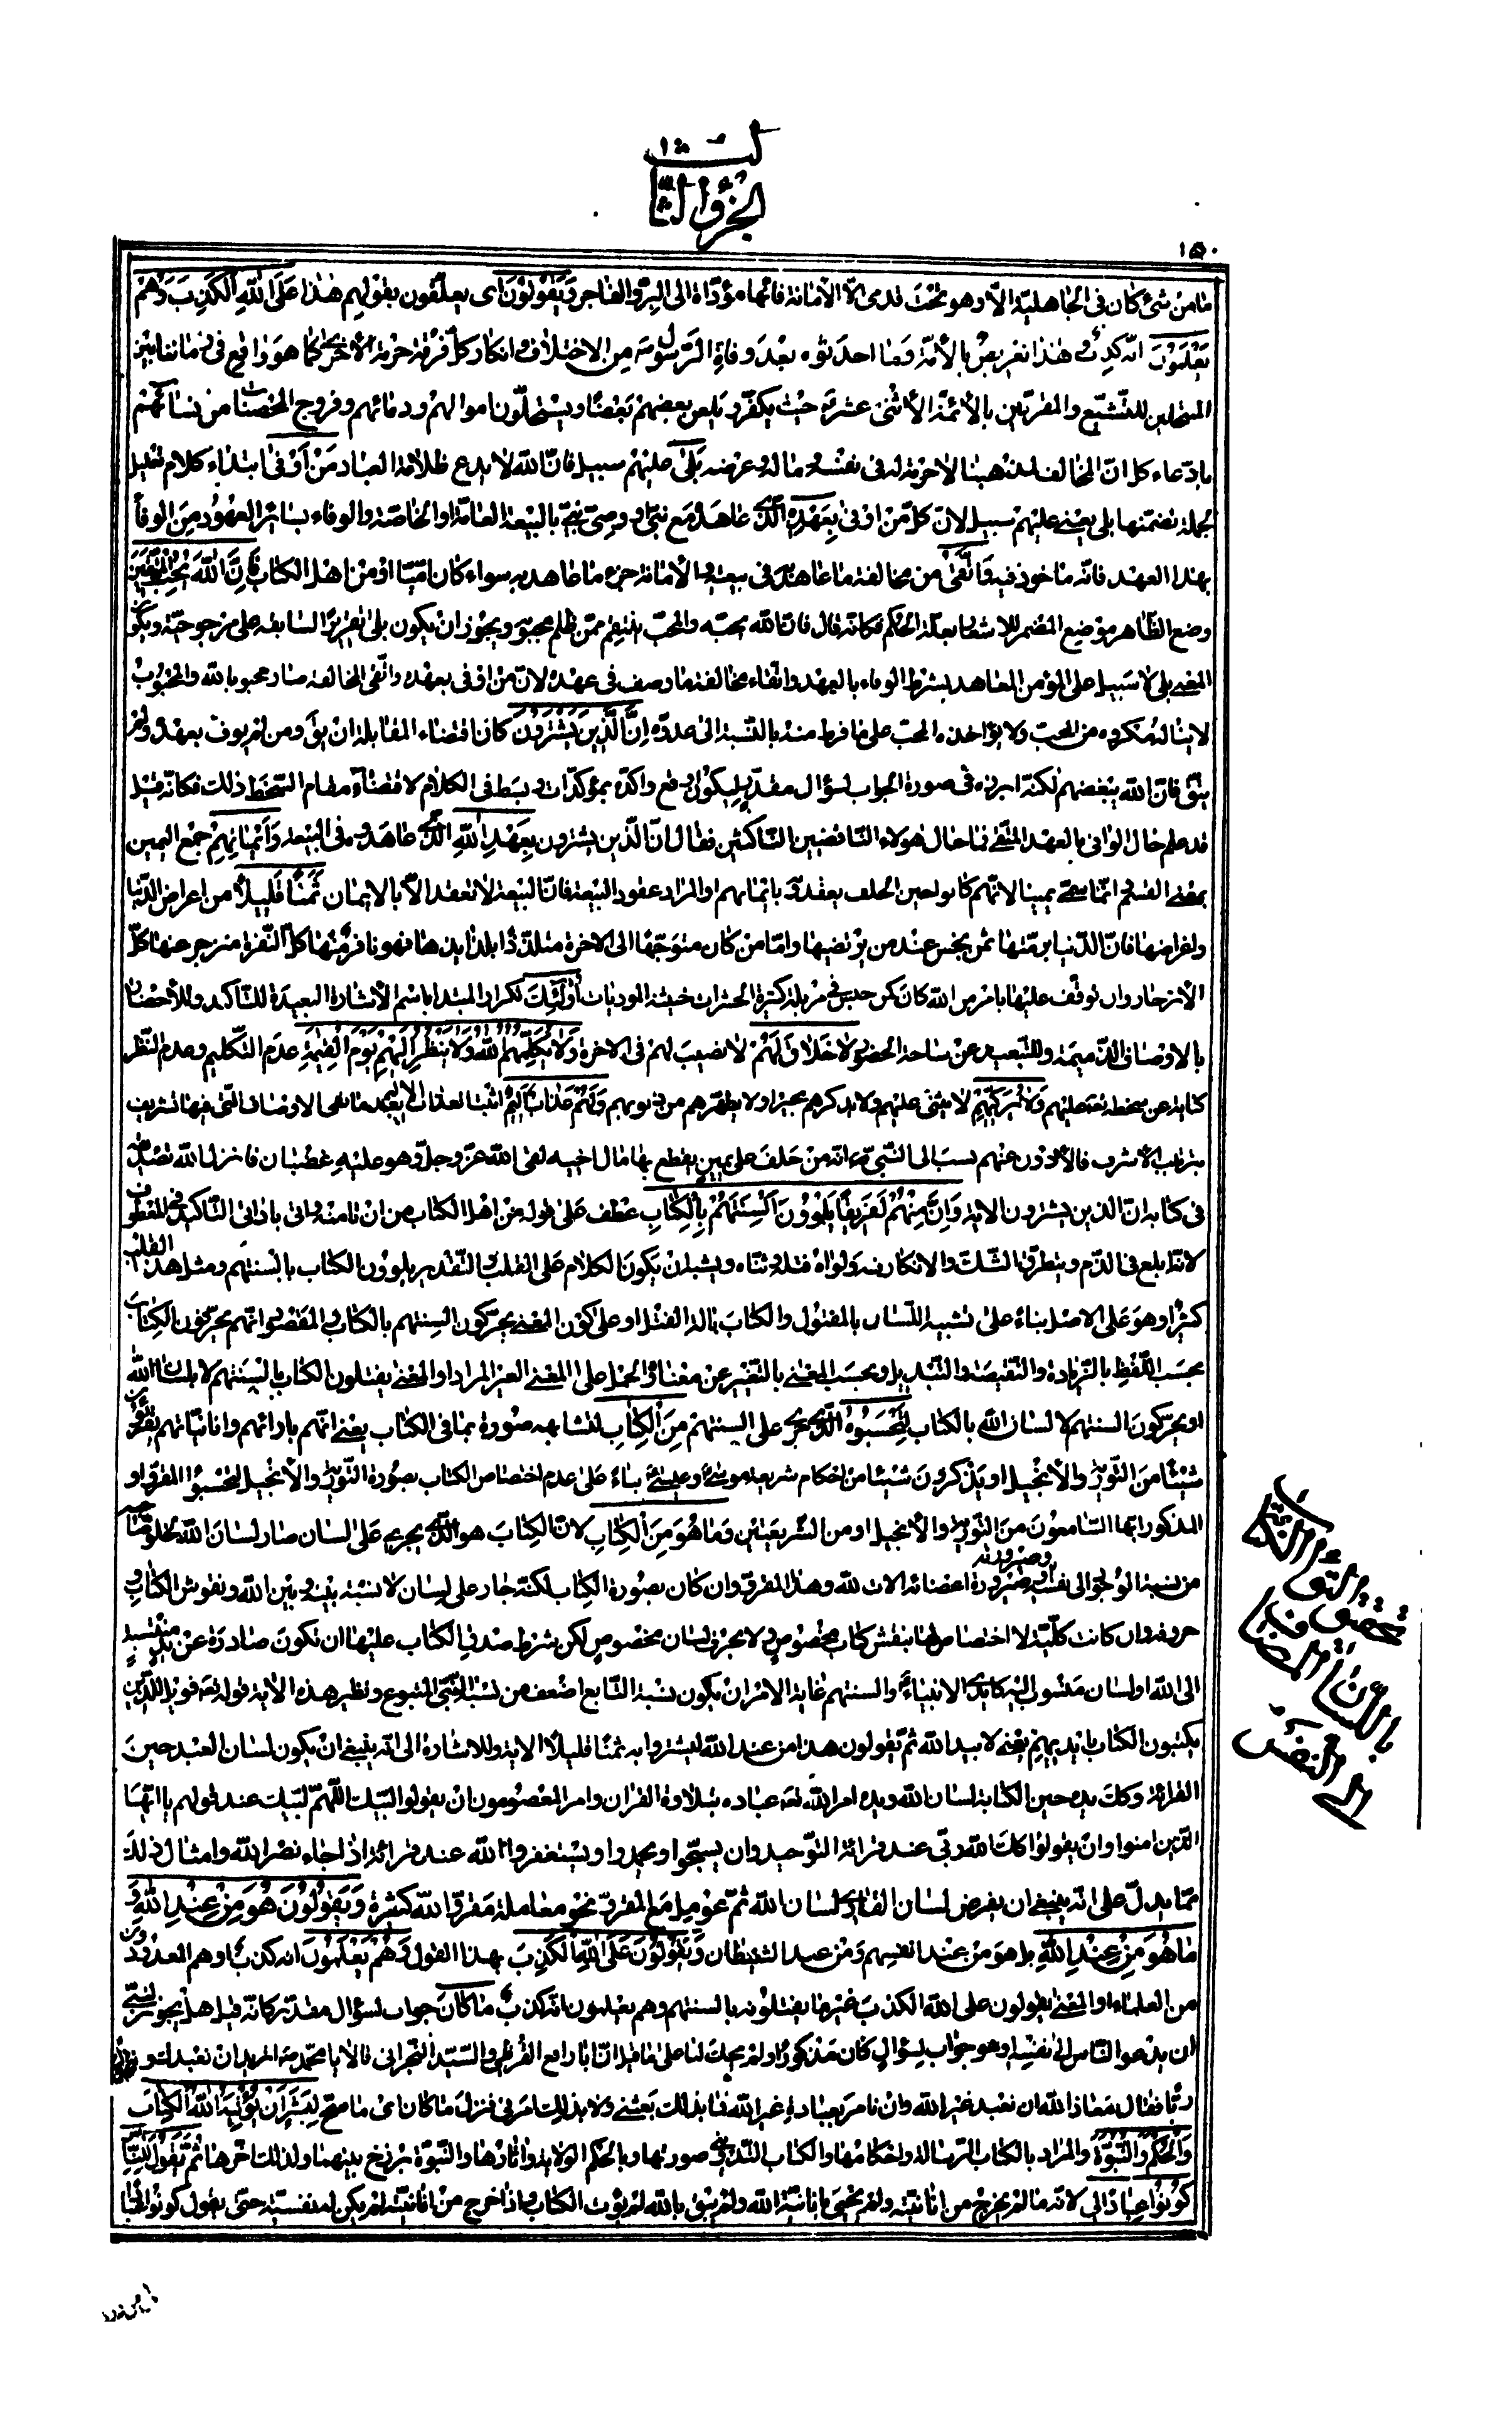 الجزؤ الثالث
١٥٠
ما من شئ كان فى الجاهليّة الّا وهو تحت قدمى الّا الأمانة فانّها مؤدّاة الى البرّ والفاجر وَيَقُولُونَ اى يعلّقون بقولهم هذا عَلَى اللّٰهِ الْكَذِبَ وَهُمْ
يَعْلَمُونَ انّه كذب وهذا تعريض بالأمّة وما احدثوه بعد وفاة الرّسول من الاختلاف وانكار كلّ فرقة حرمة الأخرى كما هو واقع فى زماننا بين
المنتحلين للتّشيّع والمقرّين بالأئمّة الأثنى عشرة حيث يكفّر ويلعن بعضهم بعضا ويستحلّون اموالهم ودمائهم وفروج المحصنات من نسائهم
بادّعاء كلّ انّ المخالف لمذهبنا لا حرمة له فى نفسه وماله وعرضه بَلىٰ عليهم سبيل فانّ اللّه لا يدع ظلامة العباد مَنْ اَوْفىٰ ابتداء كلام تعليل
لجملة تضمّنها بلى يعنى عليهم سبيل لانّ كلّ من اوفى بِعَهْدِهِ الّذى عاهده مع نبىّ او وصىّ نبىّ بالبيعة العامّة او الخاصّة والوفاء بسائر العهود من الوفاء
بهذا العهد فانّه مأخوذ فيه وَاتَّقىٰ من مخالفة ما عاهد فى بيعته والأمانة جزء ما عاهد به سواء كان امّيّا او من اهل الكتاب فَاِنَّ اللّٰهَ يُحِبُّ الْمُتَّقينَ
وضع الظّاهر موضع المضمر للاشعار بعلّة الحكم فكانّه قال فانّ اللّه يحبّه والمحبّ ينتقم ممّن ظلم محبوبه ويجوز ان يكون بلى تقريرا لسابقه على مرجوحيّة ويكون
المعنى بلى لا سبيل على المؤمن المعاهد بشرط الوفاء بالعهد واتّقاء مخالفة ما وصف فى عهده لانّ من اوفى بعهده واتّقى المخالفة صار محبوبا للّه والمحبوب
لا يناله مكروه من المحبّ ولا يؤاخذه المحبّ على ما فرط منه بالنّسبة الى عدوّه اِنَّ الَّذينَ يَشْتَرُونَ كان اقتضاء المقابلة ان يقول ومن لم يوف بعهده ولم
يتّق فانّ اللّه يبغضهم لكنّه ابرزه فى صورة الجواب لسؤال مقدّر ليكون اوقع واكّده بمؤكّدات وبسط فى الكلام لاقتضاء مقام السّخط ذلك فكانّه قيل
قد علم حال الوافى بالعهد المتّقى فما حال هؤلاء النّاقضين النّاكثين فقال انّ الّذين يشترون بِعَهْدِ اللّٰهِ الّذى عاهدوه فى البيعة وَاَيْمانِهِمْ جمع اليمين
بمعنى القسم انّما سمّى يمينا لانّهم كانوا حين الحلف يعقدون بايمانهم او المراد عقود البيعة فانّ البيعة لا تعقد الّا بالايمان ثَمَنًا قَليلًا من اعراض الدّنيا
واغراضها فانّ الدّنيا برمّتها ثمن بخس عند من يرتضيها وامّا من كان متوجّها الى الاخرة متلذّذا بلذائذها فهو نافر منها كلّ النّفرة منزجر عنها كلّ
الأنزجار وان توقّف عليها بامر من اللّه كان كمن حبس فى مزبلة كثيرة الحشرات خبيثة الموذيات اُولٰئِكَ تكرار المبتدا باسم الأشارة البعيدة للتّأكيد وللأحضار
بالاوصاف الذّميمة وللتّبعيد عن ساحة الحضور لا خَلاقَ لَهُمْ لا نصيب لهم فى الاخرة وَلا يُكَلِّمُهُمُ اللّٰهُ وَلا يَنْظُرُ اِلَيْهِمْ يَوْمَ الْقِيٰمَةِ عدم التّكليم وعدم النّظر
كناية عن سخطه تعالى عليهم وَلا يُزَكّيهِمْ لا يثنى عليهم ولا يذكرهم بخير او لا يطهّرهم من ذنوبهم وَلَهُمْ عَذابٌ اَليمٌ
فى كتابه انّ الّذين يشترون الاية وَاِنَّ مِنْهُمْ لَفَريقًا يَلْوُونَ اَلْسِنَتَهُمْ بِالْكِتابِ عطف على قوله من اهل الكتاب من ان تأمنه واتى باداتى التّأكيد فى المعطوف
لانّه ابلغ فى الذّم ويتطرّق الشّكّ والانكار فيه ولواه فتله وثناه ويشبه ان يكون الكلام على القلب والتّقدير يلوون الكتاب بالسنتهم ومثل هذا القلب
كثير او هو على الاصل بناء على تشبيه اللّسان بالمفتول والكتاب بالة الفتل او على كون المعنى يحرّكون السنتهم بالكتاب والمقصود انّهم يحرّفون الكتاب
بحسب اللّفظ بالزّيادة والنّقيصة والتّبديل وبحسب المعنى بالتّغيير عن معناه والحمل على المعنى الغير المراد او المعنى يفتلون الكتاب بالسنتهم لا بلسان اللّه
او يحرّكون السنتهم لا لسان اللّه بالكتاب لِتَحْسَبُوهُ الّذى يجرى على السنتهم مِنَ الْكِتابِ لتشابهه صورة بما فى الكتاب يعنى انّهم بارائهم وانانيّاتهم يقرؤن
شيئا من التّورية والأنجيل او يذكرون شيئا من احكام شريعة موسى وعيسى بناء على عدم اختصاص الكتاب بصورة التّورية والأنجيل لتحسبوا المقروّ او
المذكور ايّها السّامعون من التّورية والأنجيل او من الشّريعتين وَما هُوَ مِنَ الْكِتابِ لانّ الكتاب هو الّذى يجرى على لسان صار لسان اللّه بخلوّ صاحبه
من نسبة الوجود الى نفسه وصيرورة اعضائه الات للّه وهذا المقروّ وان كان بصورة الكتاب لكنّه جار على لسان لا نسبة بينه وبين اللّه ونقوش الكتاب و
حروفه وان كانت كلّيّة لا اختصاص لها بنقش كتاب مخصوص ولا بحرف لسان مخصوص لكن بشرط صدق الكتاب عليها ان تكون صادرة عن يد منتسبة
الى اللّه او لسان منسوب اليه كايدى الانبياء والسنتهم غاية الامر ان يكون نسبة التّابع اضعف من نسبة النّبىّ المتبوع ونظير هذه الاية قوله تعالى فويل للّذين
يكتبون الكتاب بايديهم يعنى لا بيد اللّه ثمّ يقولون هذا من عند اللّه ليشتروا به ثمنا قليلا الاية وللاشارة الى انّه ينبغى ان يكون لسان العبد حين
القرائة وكذا يده حين الكتابة لسان اللّه ويده امر اللّه تعالى عباده بتلاوة القران وامر المعصومون ان يقولوا لبّيك اللّهمّ لبّيك عند قولهم يا ايّها
الّذين امنوا وان يقولوا كذلك اللّه ربّى عند قرائة التّوحيد وان يسبّحوا ويحمدوا ويستغفروا اللّه عند قرائة اذا جاء نصر اللّه وامثال ذلك
ممّا يدلّ على انّه ينبغى ان يفرض لسان القارى لسان اللّه ثمّ عومل مع المقروّ نحو معاملة مقروّ اللّه كثيرة وَيَقُولُونَ هُوَ مِنْ عِنْدِ اللّٰهِ وَ
ما هُوَ مِنْ عِنْدِ اللّٰهِ بل هو من عند انفسهم ومن عند الشّيطان وَيَقُولُونَ عَلَى اللّٰهِ الْكَذِبَ بهذا القول وَهُمْ يَعْلَمُونَ انّه كذب وهم المعدودون
من العلماء او المعنى يقولون على اللّه الكذب غير ما يفتلونه بالسنتهم وهم يعلمون انّه كذب ما كانَ جواب لسؤال مقدّر كانّه قيل هل يجوز لنبىّ
ان يدعو النّاس الى نفسه او هو جواب لسؤال كان مذكورا ولم يحك لنا على ما قيل انّ ابا رافع القرظىّ والسّيّد النّجرانى قالا يا محمّد اتريد ان نعبدك ونتّخذك
ربّا فقال معاذ اللّه ان نعبد غير اللّه وان نامر بعبادة غير اللّه فما بذلك بعثنى ولا بذلك امرنى فنزل ما كان اى ما صحّ لِبَشَرٍ اَنْ يُؤْتِيَهُ اللّٰهُ الْكِتابَ
وَالْحُكْمَ وَالنُّبُوَّةَ والمراد بالكتاب الرّسالة واحكامها والكتاب التّدوينى صورتها وبالحكم الولاية واثارها والنّبوّة برزخ بينهما ولذلك اخّرها ثُمَّ يَقُولَ لِلنّاسِ
كُونُوا عِبادًا لى لانّه ما لم يخرج من انانيّته ولم يحيى بانانيّة اللّه ولم يبق باللّه لم يؤت الكتاب واذا خرج من انانيّته لم يكن له نفسيّة حتّى يقول كونوا
تحقيق